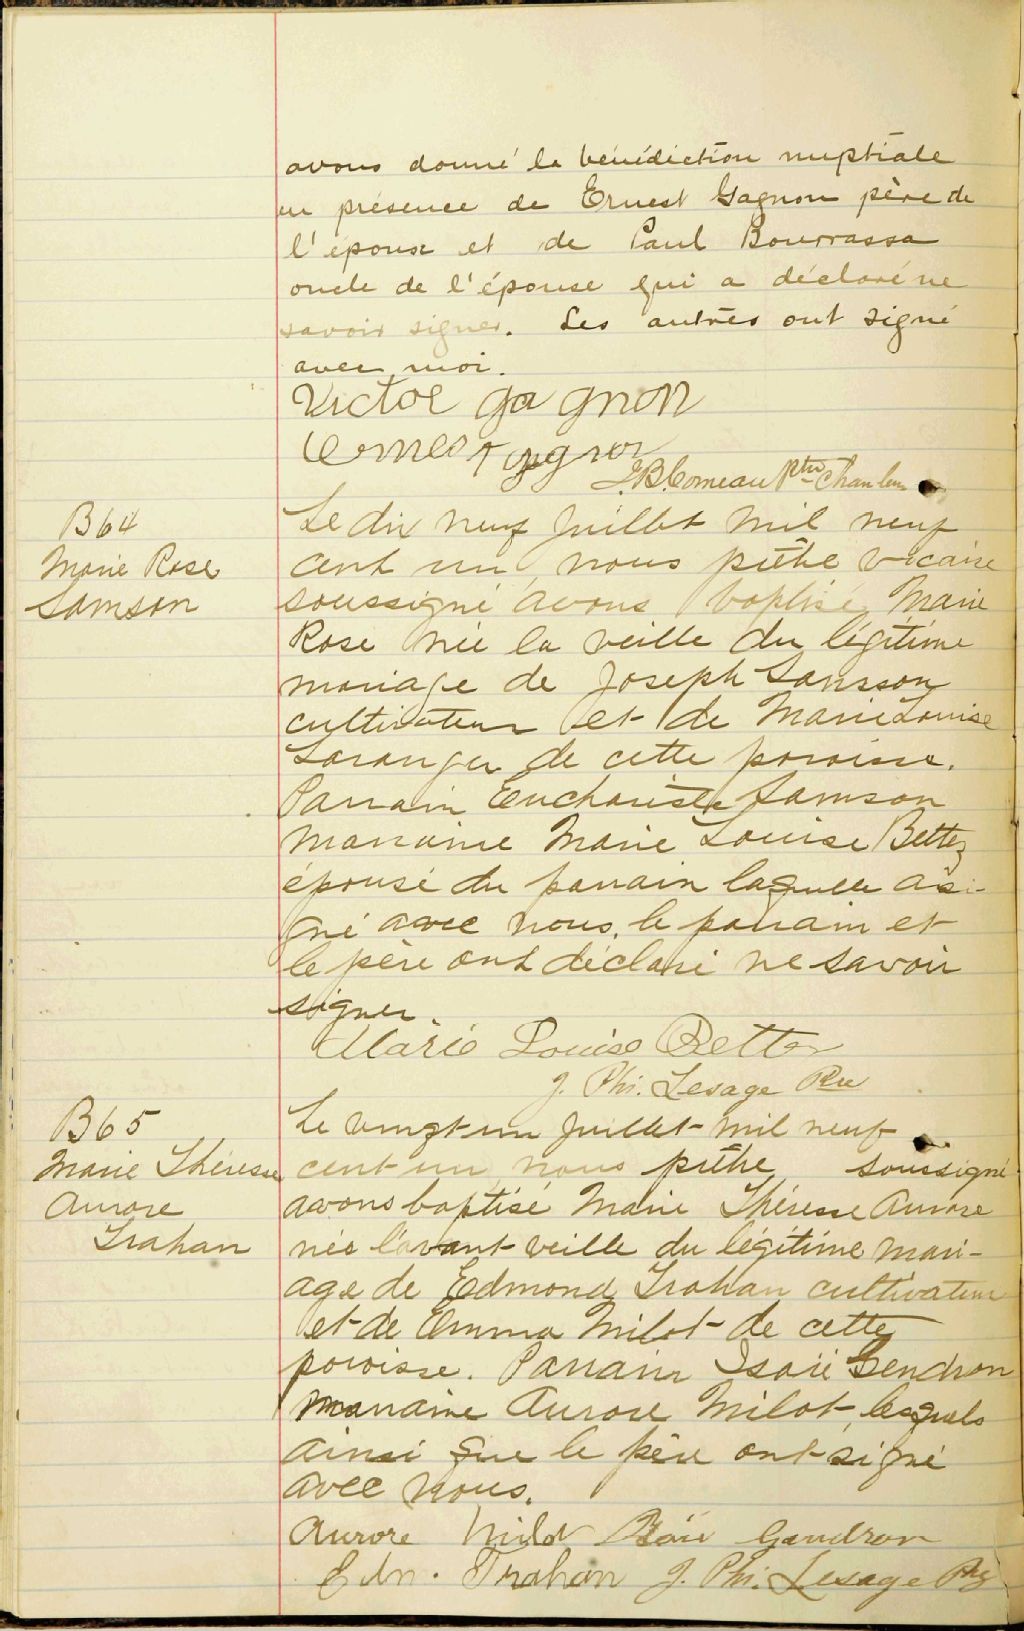 avons donné la bénédiction nuptiale
en présence de Ernest Gagnon père de
l'époux et de Paul Bourrassa
oncle de l'épouse qui a déclaré ne
savoir signer. Les autres ont signé
avec moi.
Victor gagnon
Ernest gagnon
J.B. Comeau Ptre
B 64
Marie Rose
Samson
Le dix neuf Juillet mil neuf
cent un, nous prêtre vicaire
soussigné avons baptisé Marie
Rose née la veille du légitime
mariage de Joseph Samson
cultivateur et de Marie Louise
Loranger de cette paroisse.
Parrain Euchariste Samson
marraine Marie Louise Bettez
épouse du parrain laquelle a si-
gné avec nous, le parrain et
le père ont déclaré ne savoir
signer.
Marie Louise Bettez
J. Phi. Lesage Ptre
B 65
Marie Thérèse
Aurore
Trahan
Le vingt-un Juillet mil neuf
cent un, nous prêtre soussigné
avons baptisé Marie Thérèse Aurore
née l'avant veille du légitime mari-
age de Edmond Trahan cultivateur
et de Emma Milot de cette
paroisse. Parrain Isaïe Gendron
marraine Aurore Milot, lesquels
ainsi que le père ont signé
avec nous.
Aurore Milot Isaïe Gendron
Edm. Trahan J. Phi. Lesage Ptre